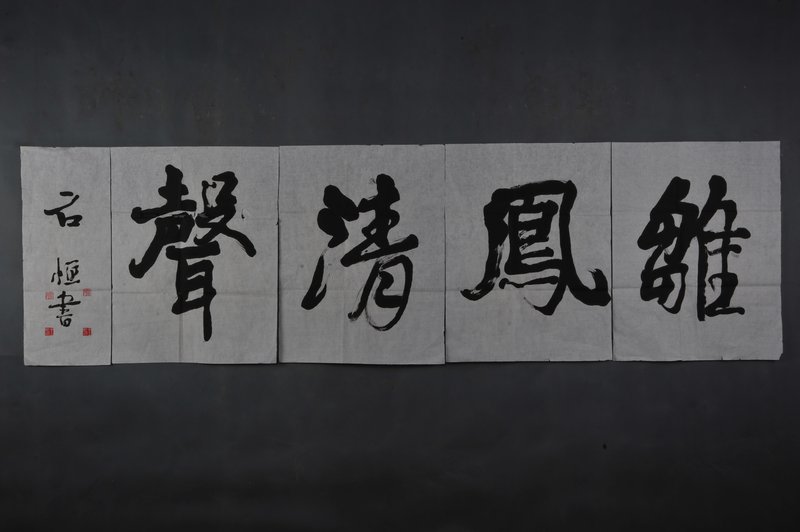 雛鳳清聲
石恒書